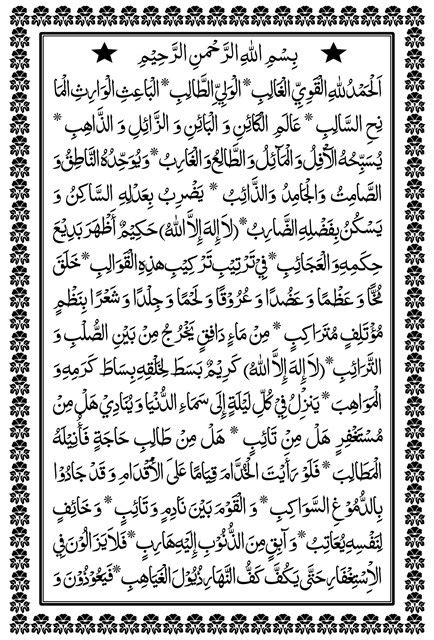 بِسْمِ اللهِ الرَّحْمٰنِ الرَّحِيْمِ
اَلْحَمْدُ لِلّٰهِ الْقَوِيِّ الْغَالِبِ * اَلْوَلِيِّ الطَّالِبِ * اَلْبَاعِثِ الْوَارِثِ الْمَا
نِحِ السَّالِبِ * عَالِمِ الْكَائِنِ وَ الْبَائِنِ وَ الزَّائِلِ وَ الذَّاهِبِ *
يُسَبِّحُهُ الْآفِلُ وَ الْمَائِلُ وَ الطَّالِعُ وَ الْغَارِبُ * وَيُوَحِّدُهُ النَّاطِقُ وَ
الصَّامِتُ وَ الْجَامِدُ وَ الذَّائِبُ * يَضْرِبُ بِعَدْلِهِ السَّاكِنُ وَ
يَسْكُنُ بِفَضْلِهِ الضَّارِبُ * (لَا إِلٰهَ إِلَّا اللهُ) حَكِيْمٌ أَظْهَرَ بَدِيْعَ
حِكَمِهِ وَ الْعَجَائِبِ * فِيْ تَرْتِيْبِ تَرْكِيْبِ هٰذِهِ الْقَوَالِبِ * خَلَقَ
مُخًّا وَ عَظْمًا وَ عَضُدًا وَ عُرُوْقًا وَ لَحْمًا وَ جِلْدًا وَ شَعْرًا بِنَظْمٍ
مُؤْتَلِفٍ مُتَرَاكِبٍ * مِنْ مَاءٍ دَافِقٍ يَخْرُجُ مِنْ بَيْنِ الصُّلْبِ وَ
التَّرَائِبِ * (لَا إِلٰهَ إِلَّا اللهُ) كَرِيْمٌ بَسَطَ لِخَلْقِهِ بِسَاطَ كَرَمِهِ وَ
الْمَوَاهِبِ * يَنْزِلُ فِيْ كُلِّ لَيْلَةٍ إِلَى سَمَاءِ الدُّنْيَا وَ يُنَادِيْ هَلْ مِنْ
مُسْتَغْفِرٍ هَلْ مِنْ تَائِبٍ * هَلْ مِنْ طَالِبِ حَاجَةٍ فَأُنِيْلَهُ
الْمَطَالِبَ * فَلَوْ رَأَيْتَ الْخُدَّامَ قِيَامًا عَلَى الْأَقْدَامِ وَ قَدْ جَادُوْا
بِالدُّمُوْعِ السَّوَاكِبِ * وَ الْقَوْمَ بَيْنَ نَادِمٍ وَ تَائِبٍ * وَ خَائِفٍ
لِنَفْسِهِ يُعَاتِبُ * وَ آبِقٍ مِنَ الذُّنُوْبِ إِلَيْهِ هَارِبٍ * فَلَا يَزَالُوْنَ فِي
الْإِسْتِغْفَارِ حَتَّى يَكُفَّ كَفُّ النَّهَارِ ذُيُوْلَ الْغَيَاهِبِ * فَيَعُوْذُوْنَ وَ